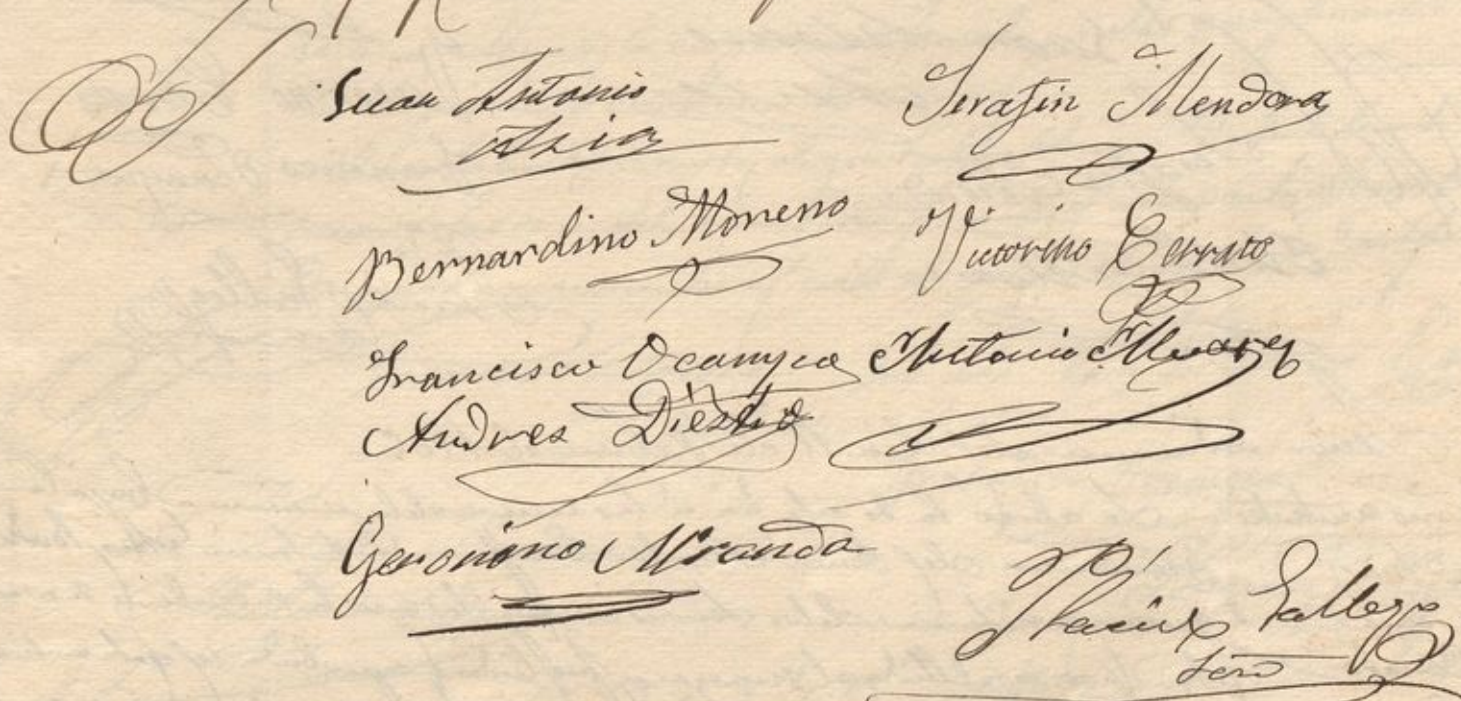 Juan Antonio Serafin Mendoza
Asia
Bernardino Moreno Victorino Cerrato
Francisco Ocampo Antonio Alvarez
Andres Diestro
Geronimo Miranda
Gallego